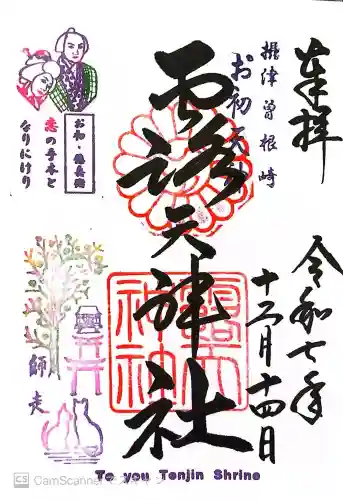 奉拝
令和七年
十二月十四日
摂津曽根崎
お初天
露天神社
露天
神社
お初・徳兵衛
恋の手本と
なりにけり
師走
To you Tenjin Shrine
CS CamScanner